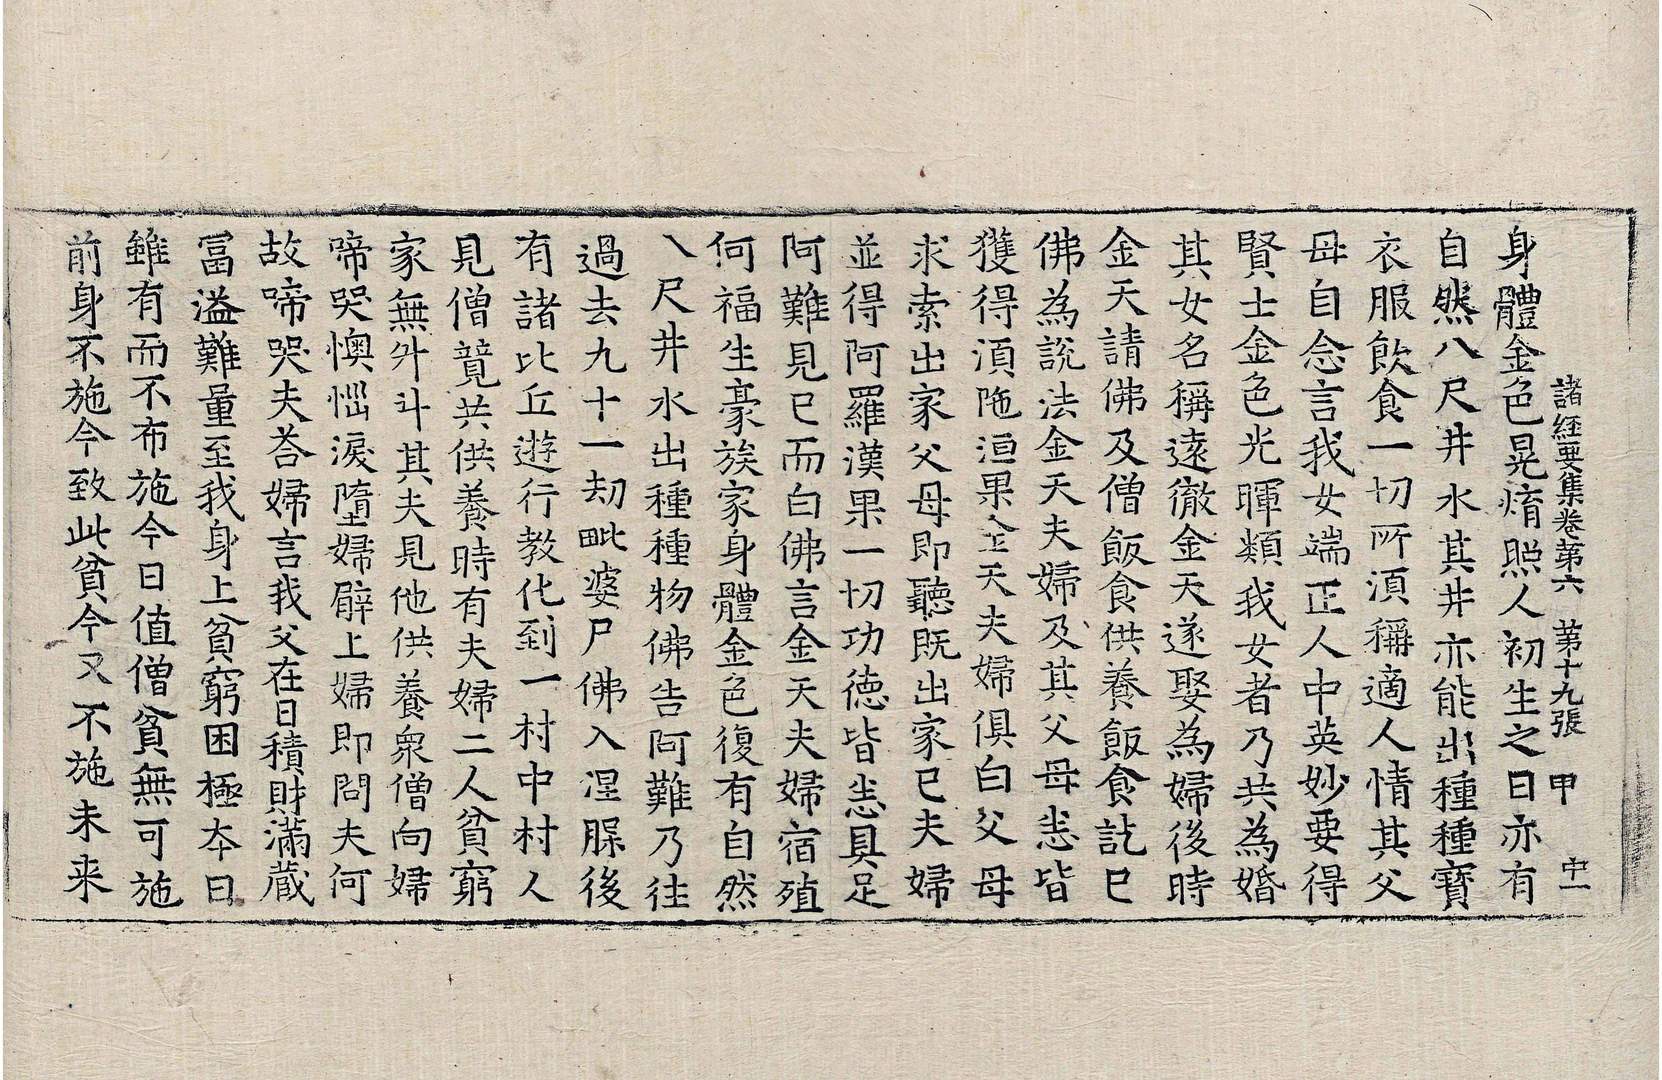 諸經要集卷第六 第十九張 甲 中一
身體金色晃煟照人初生之日亦有
自然八尺井水其井亦能出種種寶
衣服飲食一切所須稱適人情其父
母自念言我女端正人中英妙要得
賢士金色光暉類我女者乃共為婚
其女名稱遠徹金天遂娶為婦後時
金天請佛及僧飯食供養飯食訖已
佛為說法金天夫婦及其父母悉皆
獲得須陁洹果金天夫婦俱白父母
求索出家父母即聽既出家已夫婦
並得阿羅漢果一切功德皆悉具足
阿難見已而白佛言金天夫婦宿殖
何福生豪族家身體金色復有自然
八尺井水出種種物佛告阿難乃往
過去九十一劫毗婆尸佛入涅槃後
有諸比丘遊行教化到一村中村人
見僧競共供養時有夫婦二人貧窮
家無升斗其夫見他供養衆僧向婦
啼哭懊惱淚墮婦臂上婦即問夫何
故啼哭夫荅婦言我父在日積財滿藏
冨溢難量至我身上貧窮困極夲日
雖有而不布施今日值僧貧無可施
前身不施今致此貧今又不施未来